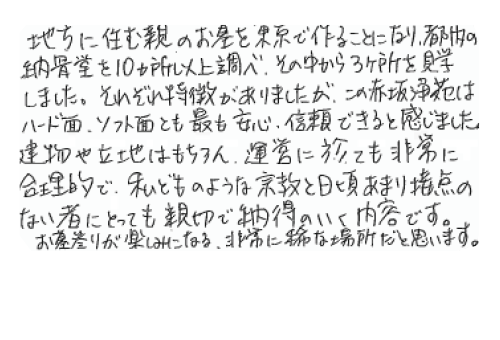 地方に住む親のお墓を東京で作ることになり、都内の
納骨堂を10カ所以上調べ、その中から3ヶ所を見学
しました。それぞれ特徴がありましたが、この赤坂浄苑は
ハード面、ソフト面とも最も安心、信頼できると感じました。
建物や立地はもちろん、運営に於ても非常に
合理的で、私どものような宗教と日頃あまり接点の
ない者にとっても親切で納得のいく内容です。
お墓参りが楽しみになる、非常に稀な場所だと思います。